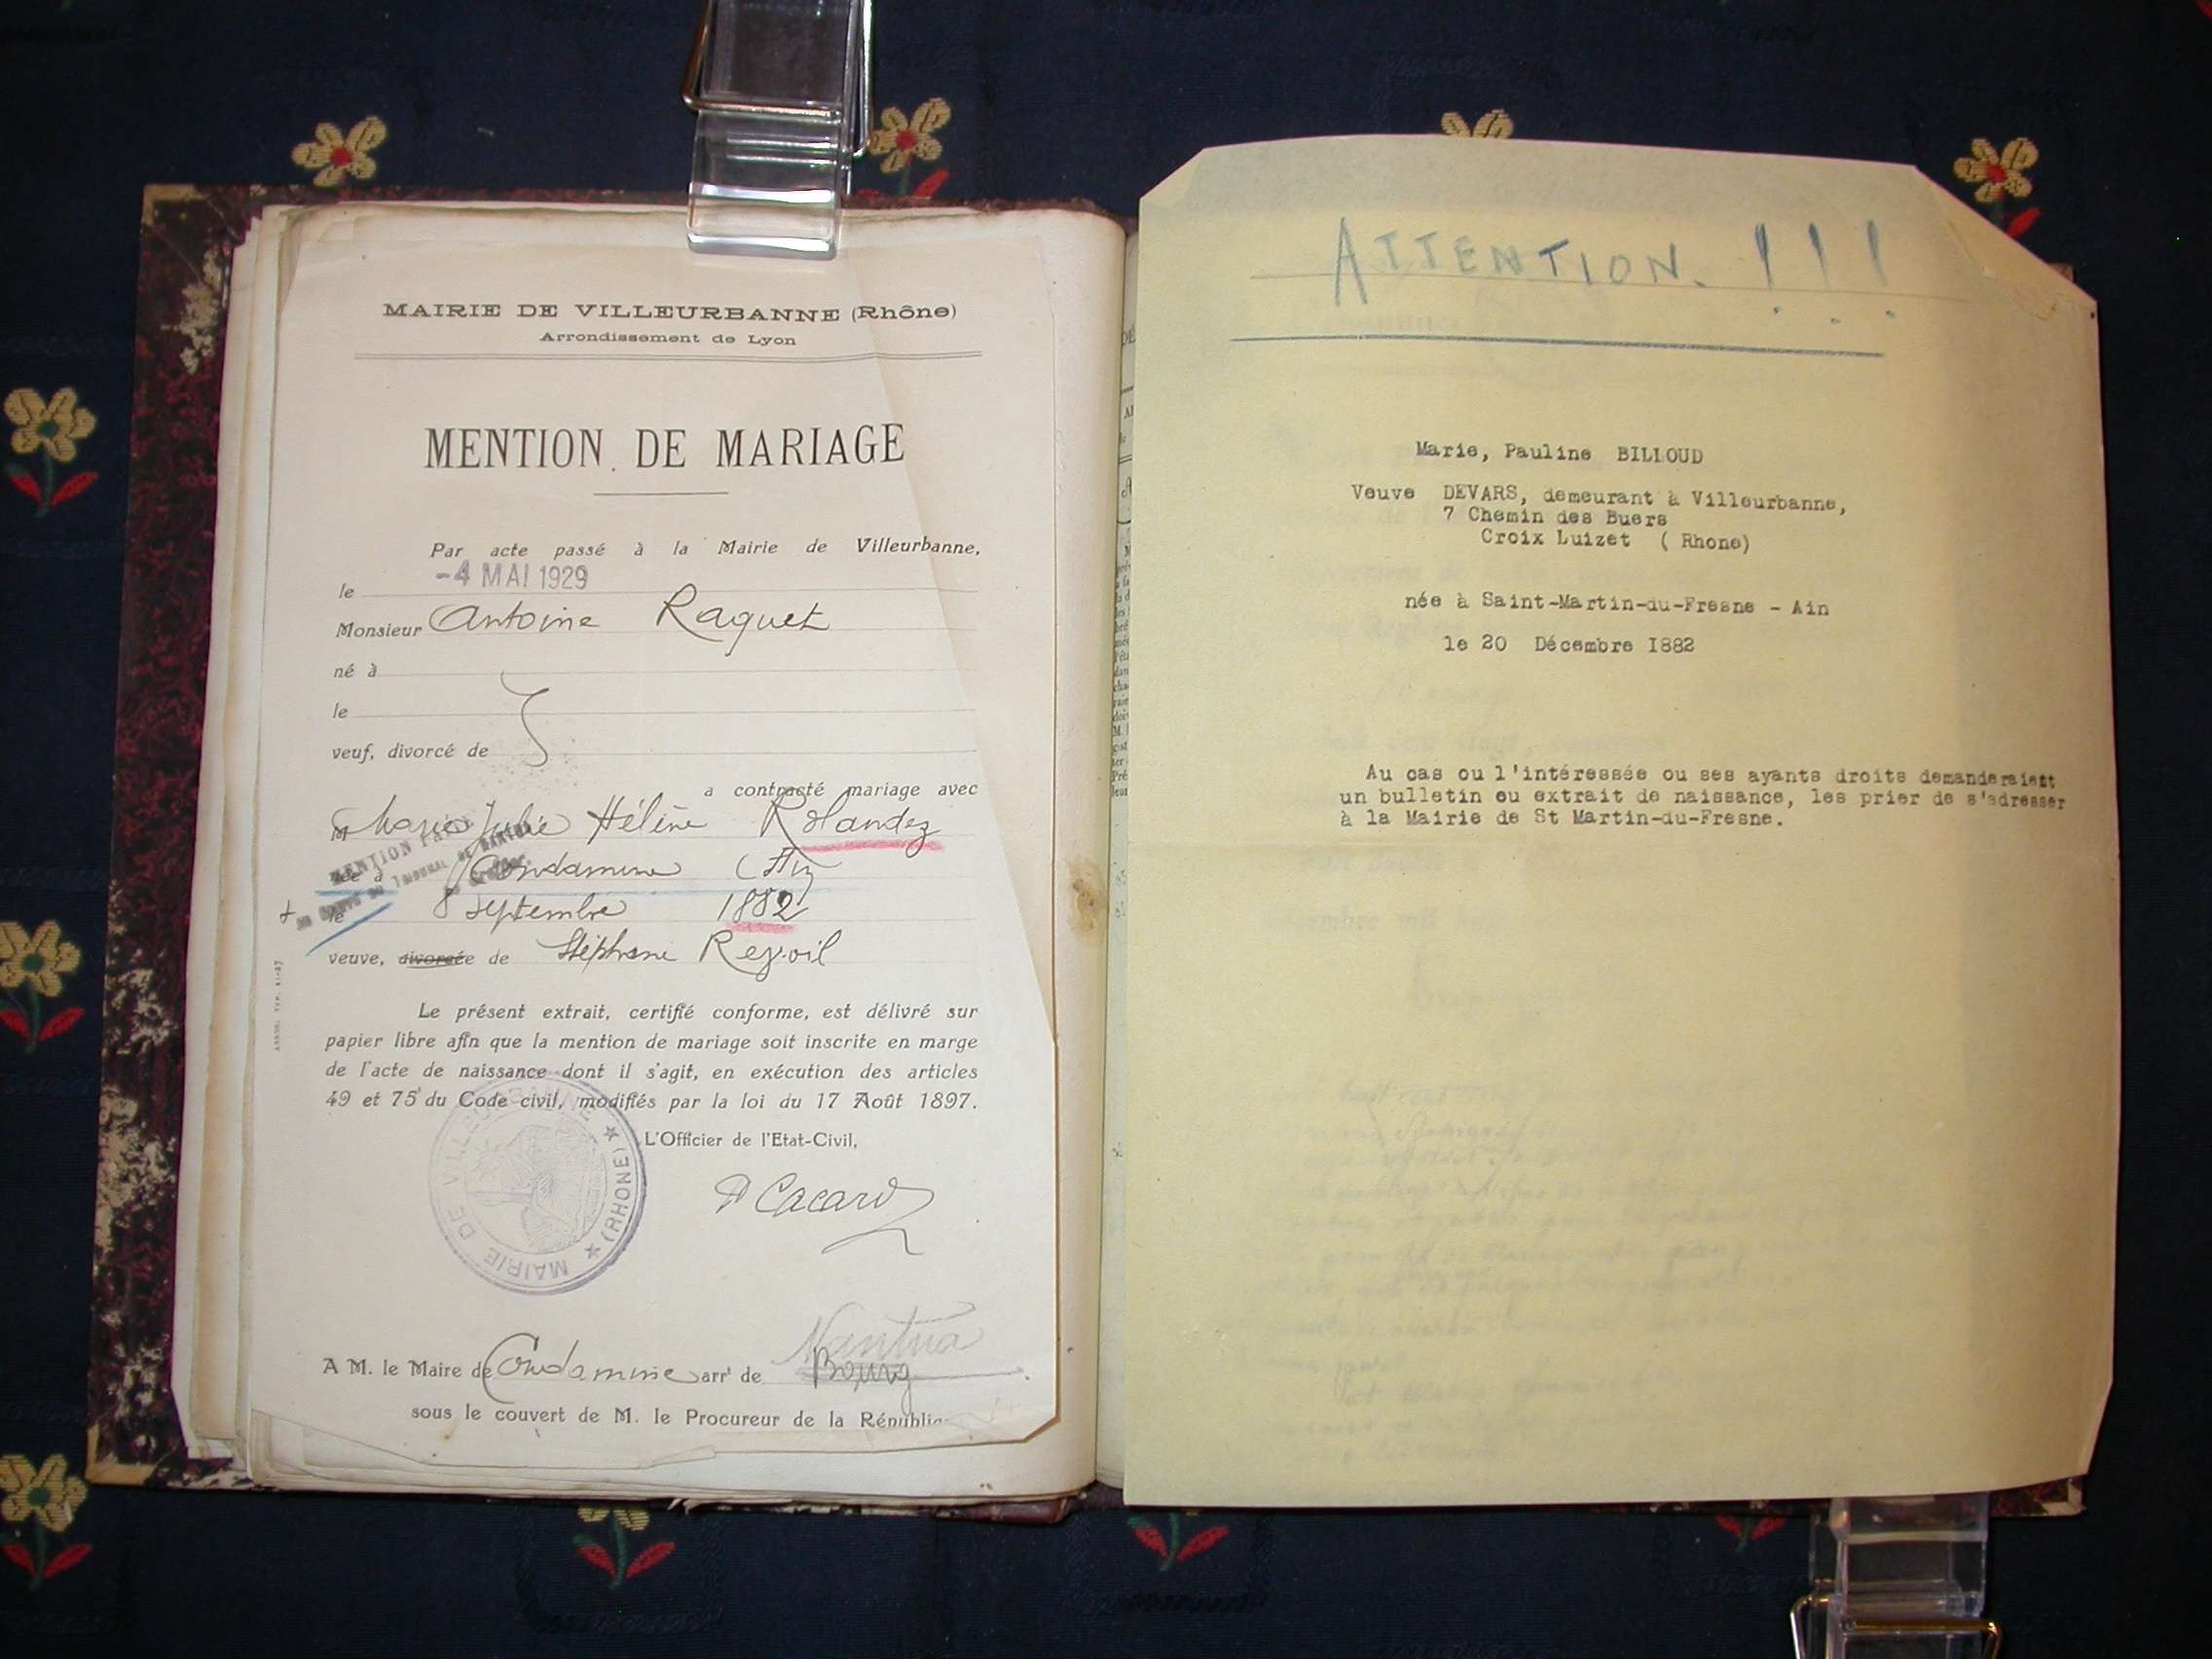 MAIRIE DE VILLEURBANNE (Rhône)
Arrondissement de Lyon
MENTION DE MARIAGE
Par acte passé à la Mairie de Villeurbanne,
le -4 MAI 1929
Monsieur Antoine Raquet
né à
le
veuf, divorcé de
a contracté mariage avec
M Marie Julie Hélène Rolandez
née à Condamine (Ain
le 8 septembre 1882
veuve, divorcée de Stéphane Reyvoil
Le présent extrait, certifié conforme, est délivré sur
papier libre afin que la mention de mariage soit inscrite en marge
de l'acte de naissance dont il s'agit, en exécution des articles
49 et 75 du Code civil, modifiés par la loi du 17 Août 1897.
L'Officier de l'Etat-Civil,
MAIRIE DE VILLEURBANNE (RHONE)
A M. le Maire de Condamine arrt de Bourg Nantua
sous le couvert de M. le Procureur de la Républi
ATTENTION. !!!
Marie, Pauline BILLOUD
Veuve DEVARS, demeurant à Villeurbanne,
7 Chemin des Buers
Croix Luizet ( Rhone)
née à Saint-Martin-du-Fresne - Ain
le 20 Décembre 1882
Au cas ou l'intéressée ou ses ayants droits demanderaient
un bulletin ou extrait de naissance, les prier de s'adresser
à la Mairie de St Martin-du-Fresne.